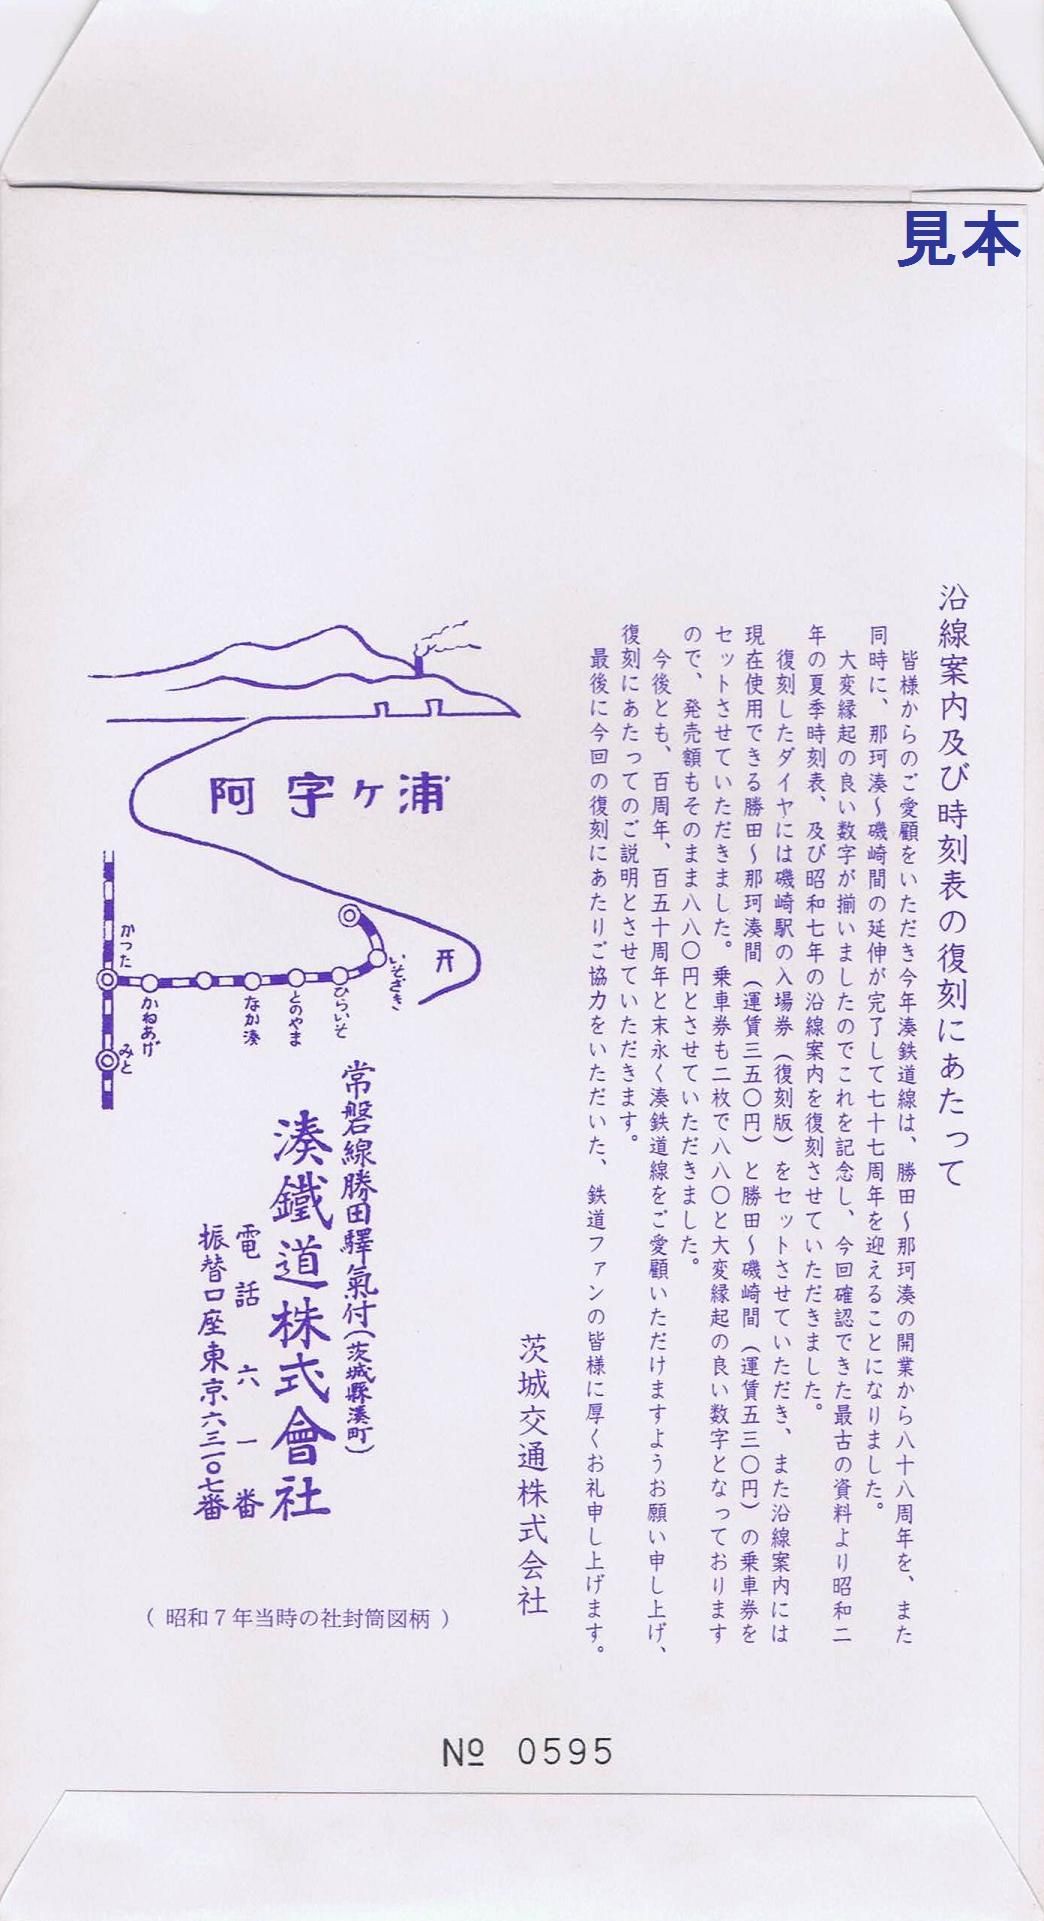 見本
沿線案内及び時刻表の復刻にあたって
皆様からのご愛顧をいただき今年湊鉄道線は、勝田～那珂湊の開業から八十八周年を、また
同時に、那珂湊～磯崎間の延伸が完了して七十七周年を迎えることになりました。
大変縁起の良い数字が揃いましたのでこれを記念し、今回確認できた最古の資料より昭和二
年の夏季時刻表、及び昭和七年の沿線案内を復刻させていただきました。
復刻したダイヤには磯崎駅の入場券（復刻版）をセットさせていただき、また沿線案内には
現在使用できる勝田～那珂湊間（運賃三五〇円）と勝田～磯崎間（運賃五三〇円）の乗車券を
セットさせていただきました。乗車券も二枚で八八〇と大変縁起の良い数字となっております
ので、発売額もそのまま八八〇円とさせていただきました。
今後とも、百周年、百五十周年と末永く湊鉄道線をご愛顧いただけますようお願い申し上げ、
復刻にあたってのご説明とさせていただきます。
最後に今回の復刻にあたりご協力をいただいた、鉄道ファンの皆様に厚くお礼申し上げます。
茨城交通株式会社
阿字ヶ浦
かつた
みと
かねあげ
なか湊
とのやま
ひらいそ
いそざき
常磐線勝田驛氣付(茨城縣湊町)
湊鐵道株式會社
電話 六一番
振替口座東京六三一〇七番
（昭和７年当時の社封筒図柄）
№ 0595